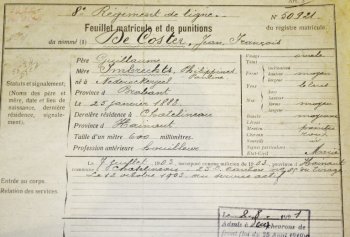 8e Régiment de ligne.
No 50921
Feuillet matricule et de punitions
du registre matricule.
du nommé (a) De Coster, Jean, François
Père Guillaume
Mère Imbrechts, Philippine
né à Nederockerzeel
Province à Brabant
Le 25 janvier 1883
Dernière résidence à Châtelineau
Province à Hainaut
Taille d'un mètre 600 millimètres.
Profession antérieure houilleur
Statuts et signalement:
(Noms des père et
mère, date et lieu de
naissance, dernière
résidence, signalement.)
Visage ovale
Front moyen
Yeux bleus
Nez moyen
Bouche moyenne
Menton
Cheveux
Sourcils
Signes particuliers
État-Civil Marié
Entrée au corps.
Relation des services.
Le 7 juillet 1903 incorporé comme milicien de 1903, province d Hainaut
Châtelineau, 23e canton no 95 du tirage
Le 12 octobre 1903 au service actif